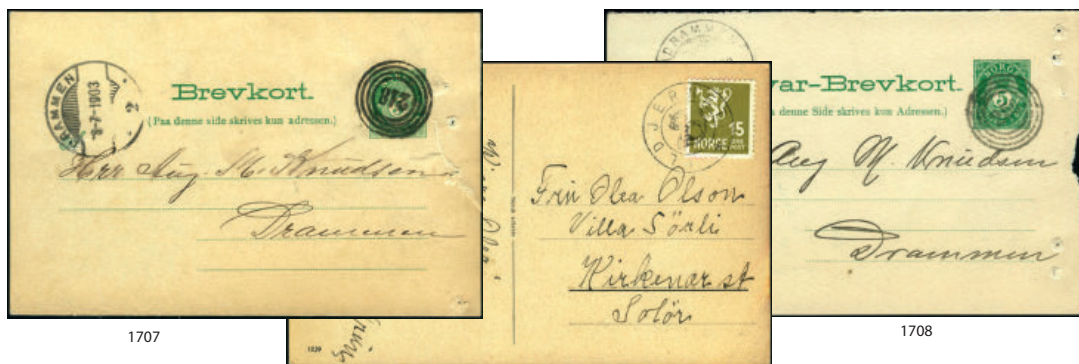 DRAMMEN
8-7-1903
2
Brevkort.
(Paa denne side skrives kun adressen.)
248
Herr Aug. M. Knudsen
Drammen
1707
15
NORGE
Frü Olea Olson
Villa Sörli
Kirkenær st
Solör
1229
DRAMMEN
var-Brevkort.
a denne Side skrives kun Adressen.)
NORGE
5
Aug M. Knudsen
Drammen
1708